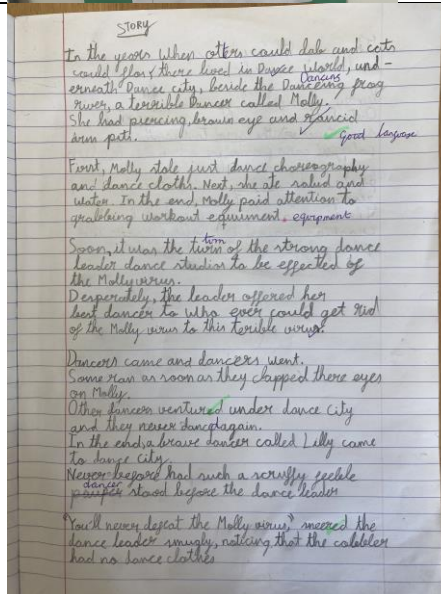 STORY
In the years when otters could dab and cats
could flos, there lived in Dance World, und-
erneath Dance city, beside the Danceing frog
Dancing
river, a terrible Dancer called Molly.
She had piercing, brown eye and rancid
arm pits.
Good language
First, Molly stole just dance choreography
and dance cloths. Next, she ate salud and
water. In the end, Molly paid attention to
grabbing workout equiument. equipment
Soon, it was the turn of the strong dance
turn
leader dance studios to be effected of
the Molly virus.
Desperately, the leader offered her
best dancer to who ever could get rid
of the Molly virus to this terible virus.
Dancers came and dancers went.
Some ran as soon as they clapped there eyes
on Molly.
Other dancers ventured under dance city
and they never danced again.
In the end, a brave dancer called Lilly came
to dance city.
Never before had such a scruffy feeble
dancer
pauper stood before the dance leader
"You'll never defeat the Molly virus," sneered the
dance leader smugly, noticing that the cobbler
had no dance clothes